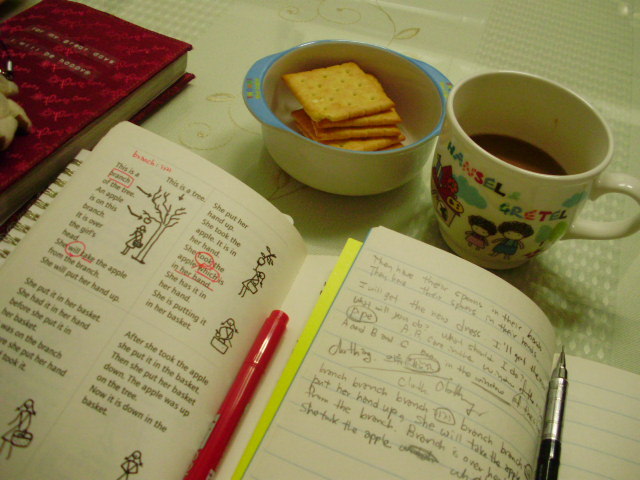 for my great dark
will be hooore
HANSEL & GRETEL
branch:
This is a
branch
of the tree.
An apple
is on this
branch.
It is over
the girl's
head.
She will take the apple
from the branch.
She will put her hand up.
This is a tree.
She put her
hand up.
She took the
apple. It is in
her hand.
She took the
apple which is
in her hand.
She has it in
her hand.
She is putting it
in her basket.
She put it in her basket.
She had it in her hand
before she put it in
her basket.
was on the branch
before she put her hand
took it.
After she took the apple
she put it in the basket.
Then she put her basket
down. The apple was up
on the tree.
Now it is down in the
basket.
They have their spoons in their
They have their spoons in their
I will get the new dress I'll get the
What will you do? What should I do
A and B and C
in the window
clothing
Cloth Clothing
branch branch branch branch, branch
put her hand up, She will take the apple
from the branch. Branch is over her
she took the apple